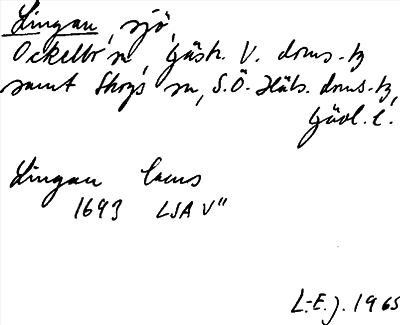 Lingan, sjö,
Ockelbo sn, Gästr. V. doms.-tg
samt Skogs sn, S.Ö. Häls. doms.-tg,
Gävl. l.
Lingan lacus
1693 LSA V"
L-E.J. 1965